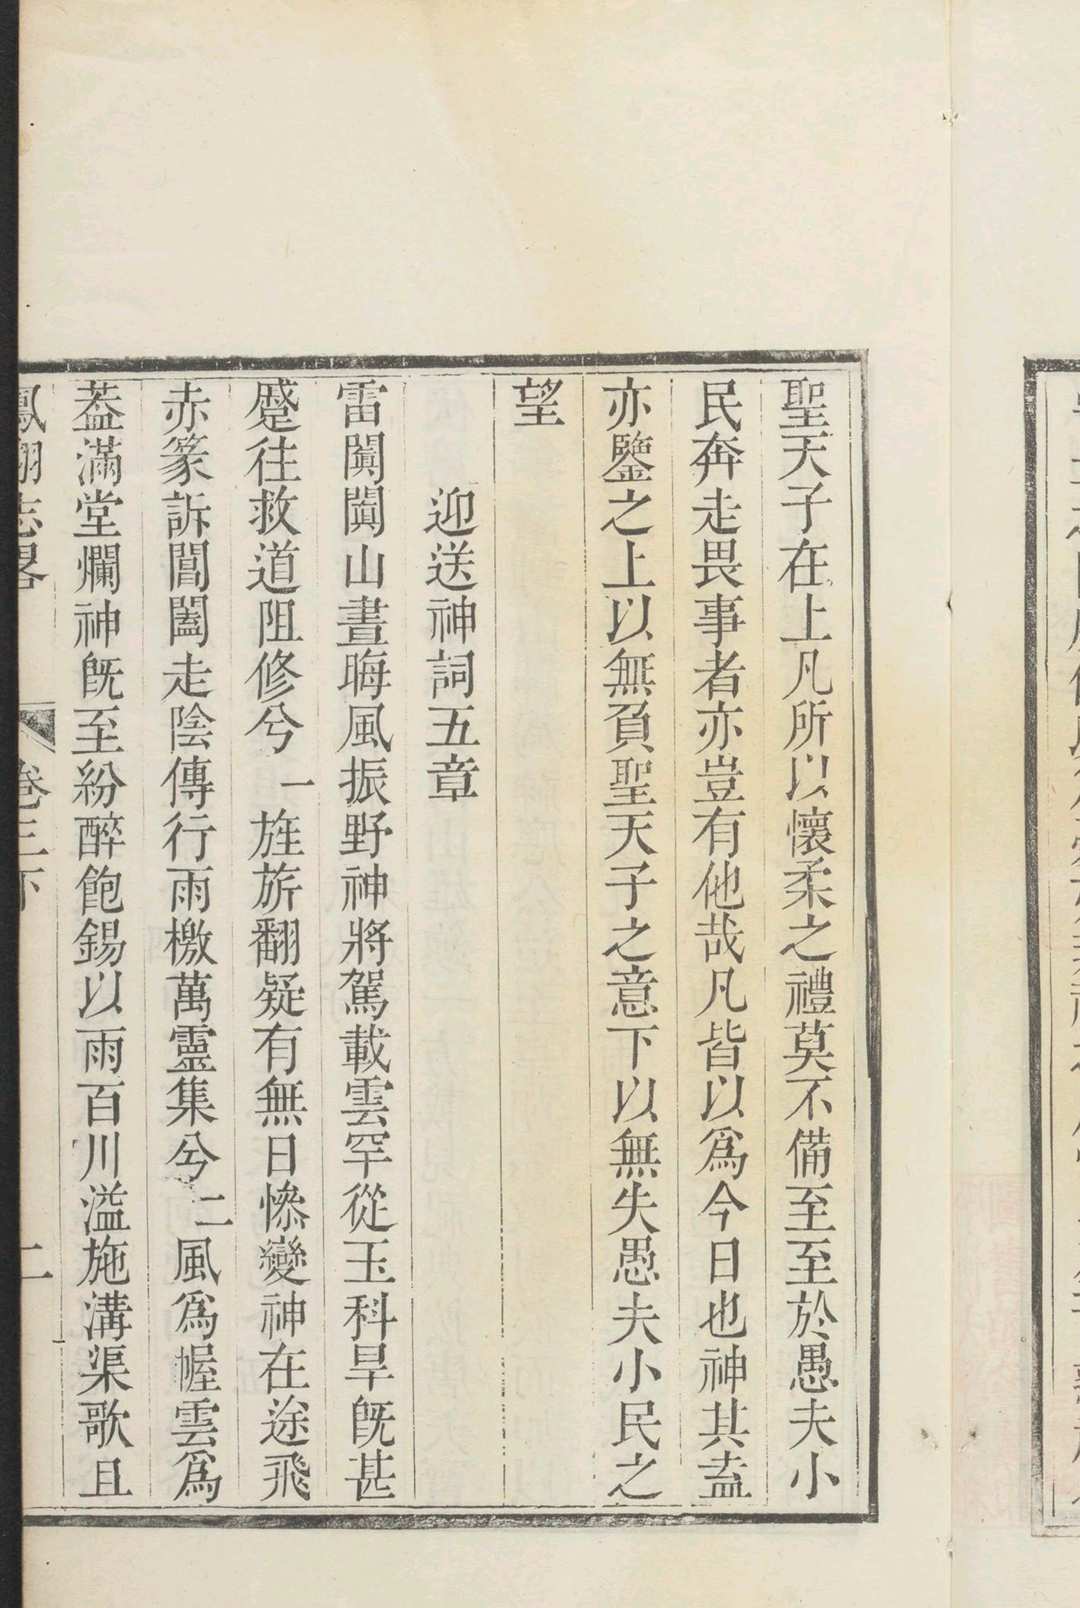 聖天子在上凡所以懷柔之禮莫不備至至於愚夫小
民奔走畏事者亦豈有他哉凡皆以爲今日也神其盍
亦鑒之上以無負聖天子之意下以無失愚夫小民之
望
迎送神詞五章
雷闐闐山晝晦風振野神將駕載雲罕從玉科旱旣甚
蹙往救道阻修兮一旌旂翻疑有無日慘變神在途飛
赤篆訴閶闔走陰傳行雨檄萬靈集兮二風爲幄雲爲
葢滿堂爛神旣至紛醉飽錫以雨百川溢施溝渠歌且
鳳翔志畧 卷三下 二